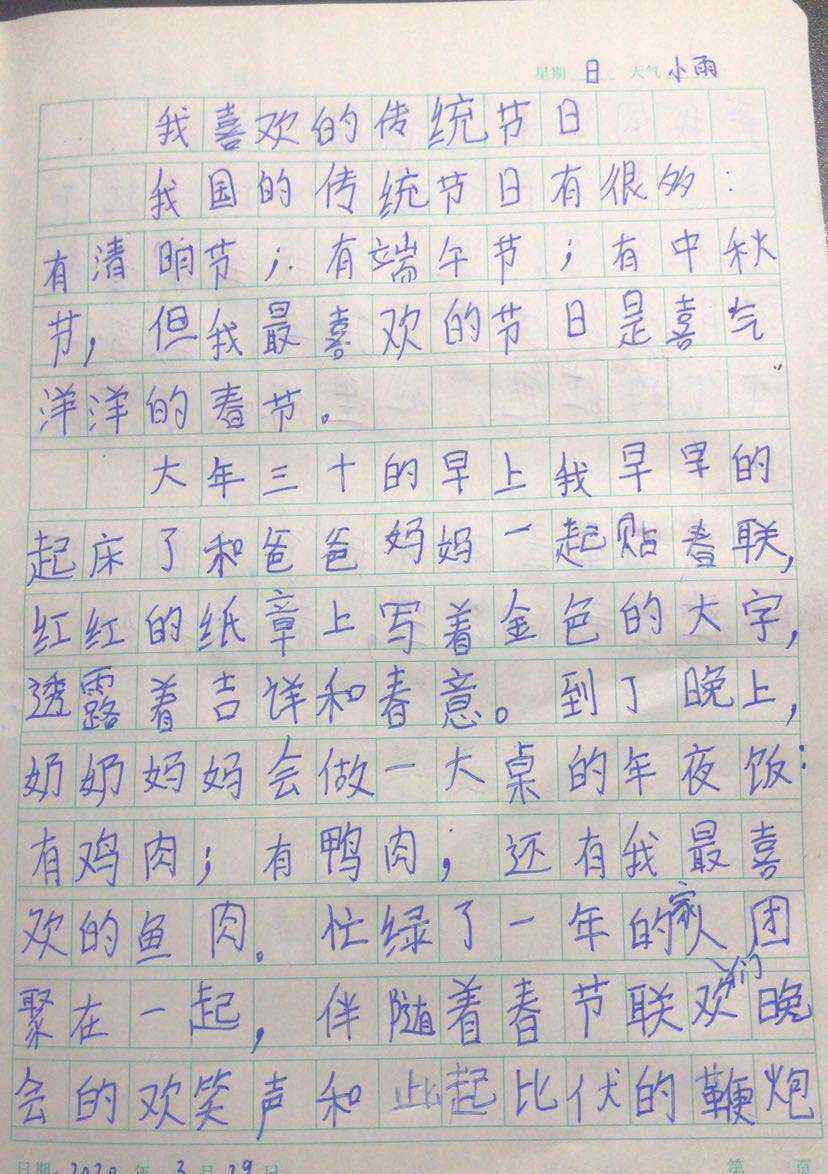 星期 日 天气 小雨
我喜欢的传统节日
我国的传统节日有很多：
有清明节；有端午节；有中秋
节，但我最喜欢的节日是喜气
洋洋的春节。
大年三十的早上我早早的
起床了和爸爸妈妈一起贴春联，
红红的纸章上写着金色的大字，
透露着吉详和春意。到了晚上，
奶奶妈妈会做一大桌的年夜饭：
有鸡肉；有鸭肉；还有我最喜
欢的鱼肉。忙绿了一年的家人们团
聚在一起，伴随着春节联欢晚
会的欢笑声和此起比伏的鞭炮
日期：2020 年 3 月 29 日 第 页